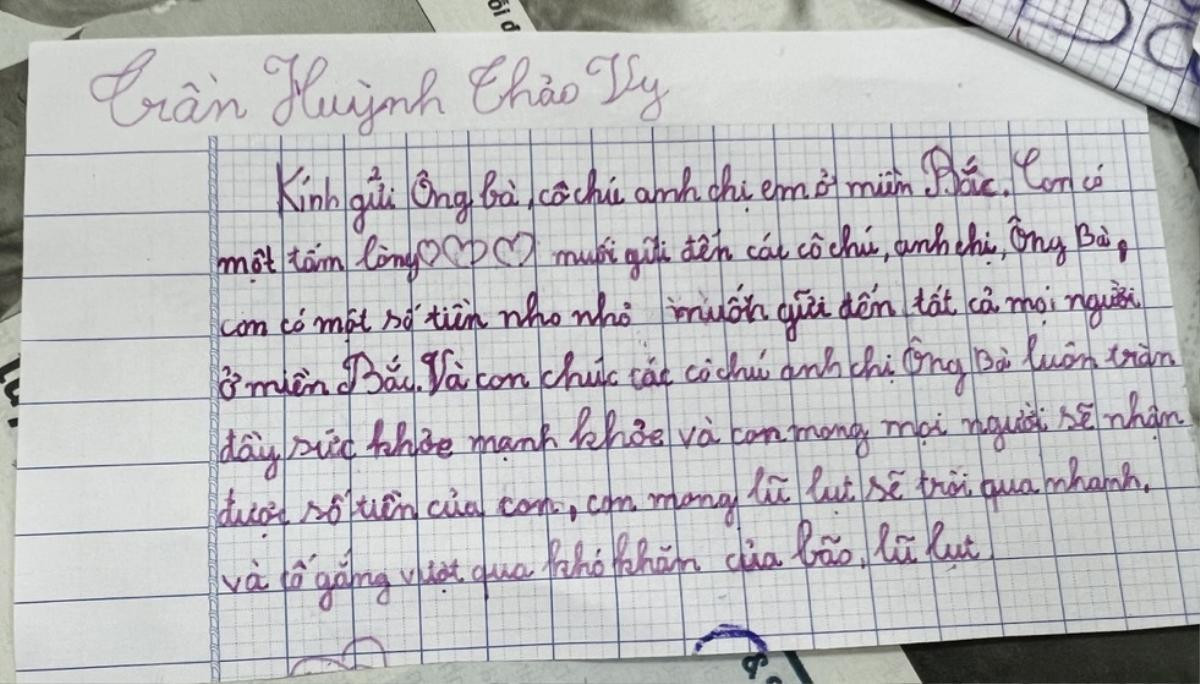 Trần Huỳnh Thảo Vy
Kính gửi Ông bà, cô chú anh chị em ở miền Bắc. Con có
một tấm lòng♡♡♡ muối gửi đến các cô chú, anh chị, Ông Bà,
con có một số tiền nho nhỏ muốn gửi đến tất cả mọi người
ở miền Bắc. Và con chúc các cô chú anh chị Ông Bà luôn tràn
đầy sức khỏe mạnh khỏe và con mong mọi người sẽ nhận
được số tiền của con, con mong lũ lụt sẽ trôi qua nhanh.
và cố gắng vượt qua khó khăn của bão, lũ lụt